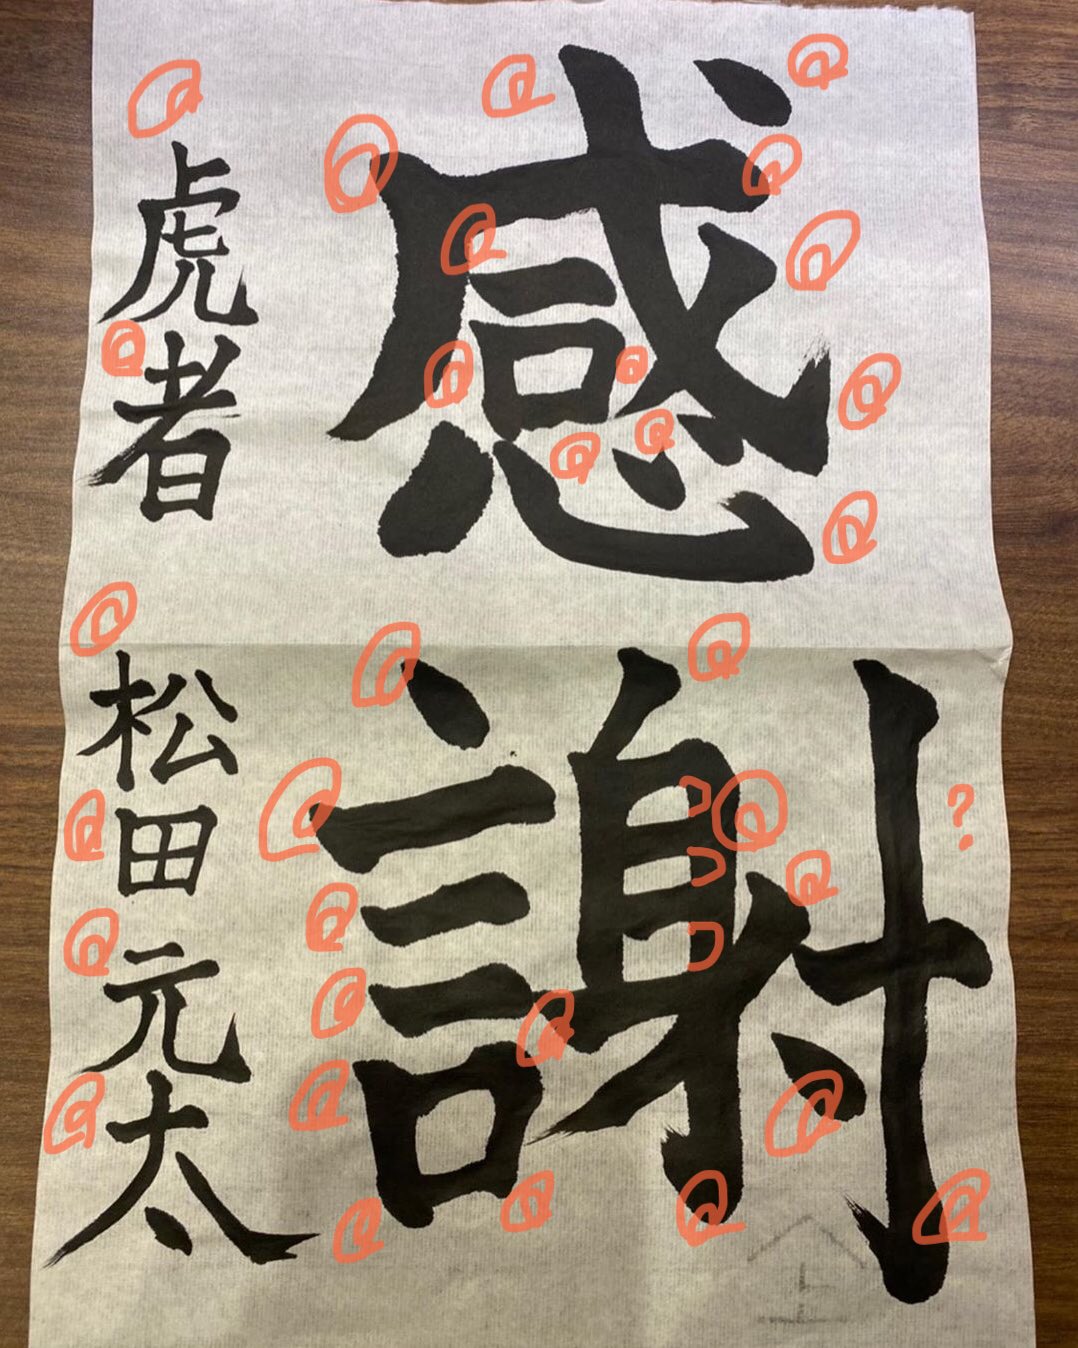 感謝
虎者
松田元太
?